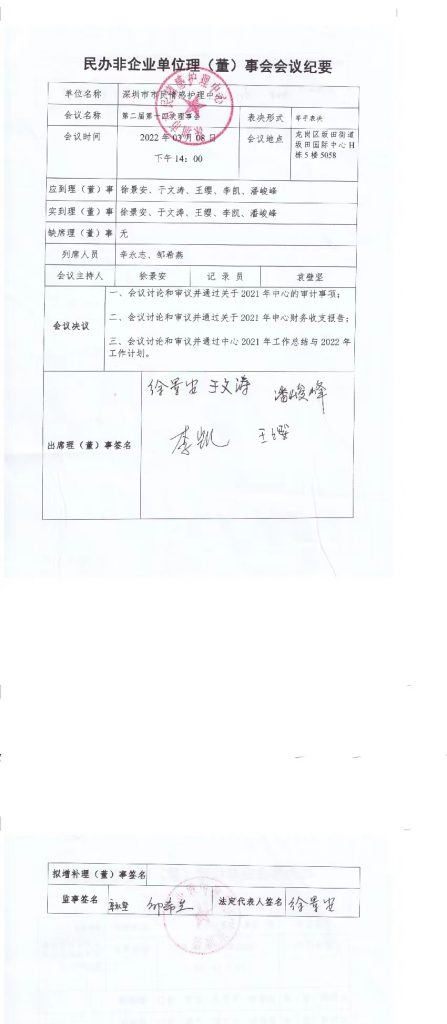 民办非企业单位理（董）事会会议纪要
单位名称 深圳市市民情感护理中心
会议名称 第二届第十四次理事会 表决形式 举手表决
会议时间 2022 年 03 月 08 日
下午 14：00
会议地点 龙岗区坂田街道
坂田国际中心 H
栋 5 楼 5058
应到理（董）事 徐景安、于文涛、王缨、李凯、潘峻峰
实到理（董）事 徐景安、于文涛、王缨、李凯、潘峻峰
缺席理（董）事 无
列席人员 辛永志、邹希燕
会议主持人 徐景安 记 录 员 袁璧坚
会议决议
一、会议讨论和审议并通过关于 2021 年中心的审计事项；
二、会议讨论和审议并通过关于 2021 年中心财务收支报告；
三、会议讨论和审议并通过中心 2021 年工作总结与 2022 年
工作计划。
出席理（董）事签名
徐景安 于文涛 潘峻峰
李凯 王缨
拟增补理（董）事签名
监事签名 法定代表人签名 徐景安